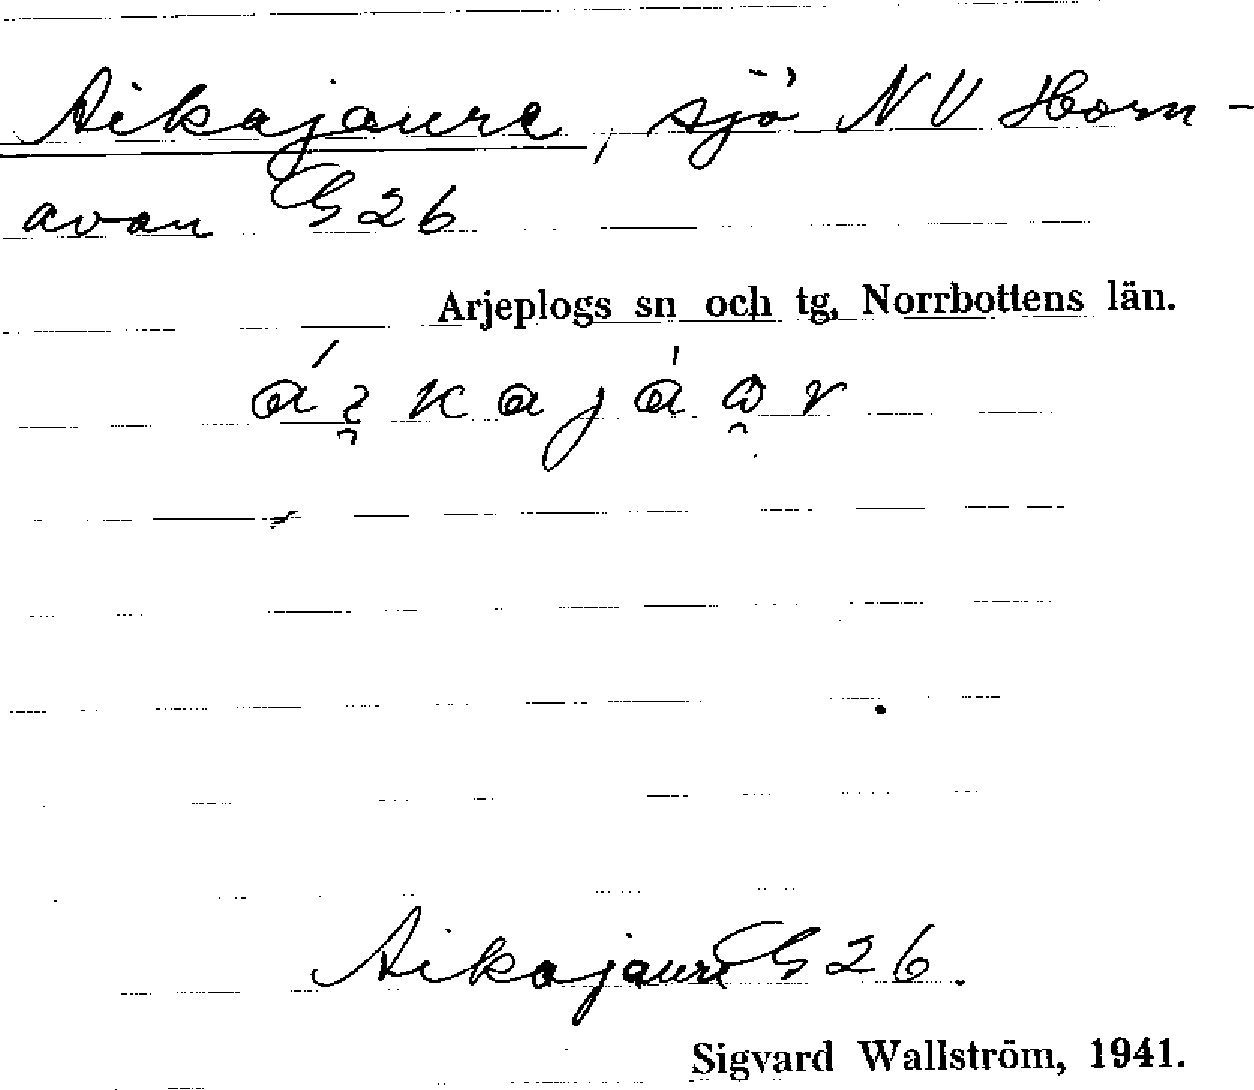 Aikajaure, sjö NV Horn-
avan G26
Arjeplogs sn och tg, Norrbottens län.
Aikajaure G26.
Sigvard Wallström, 1941.